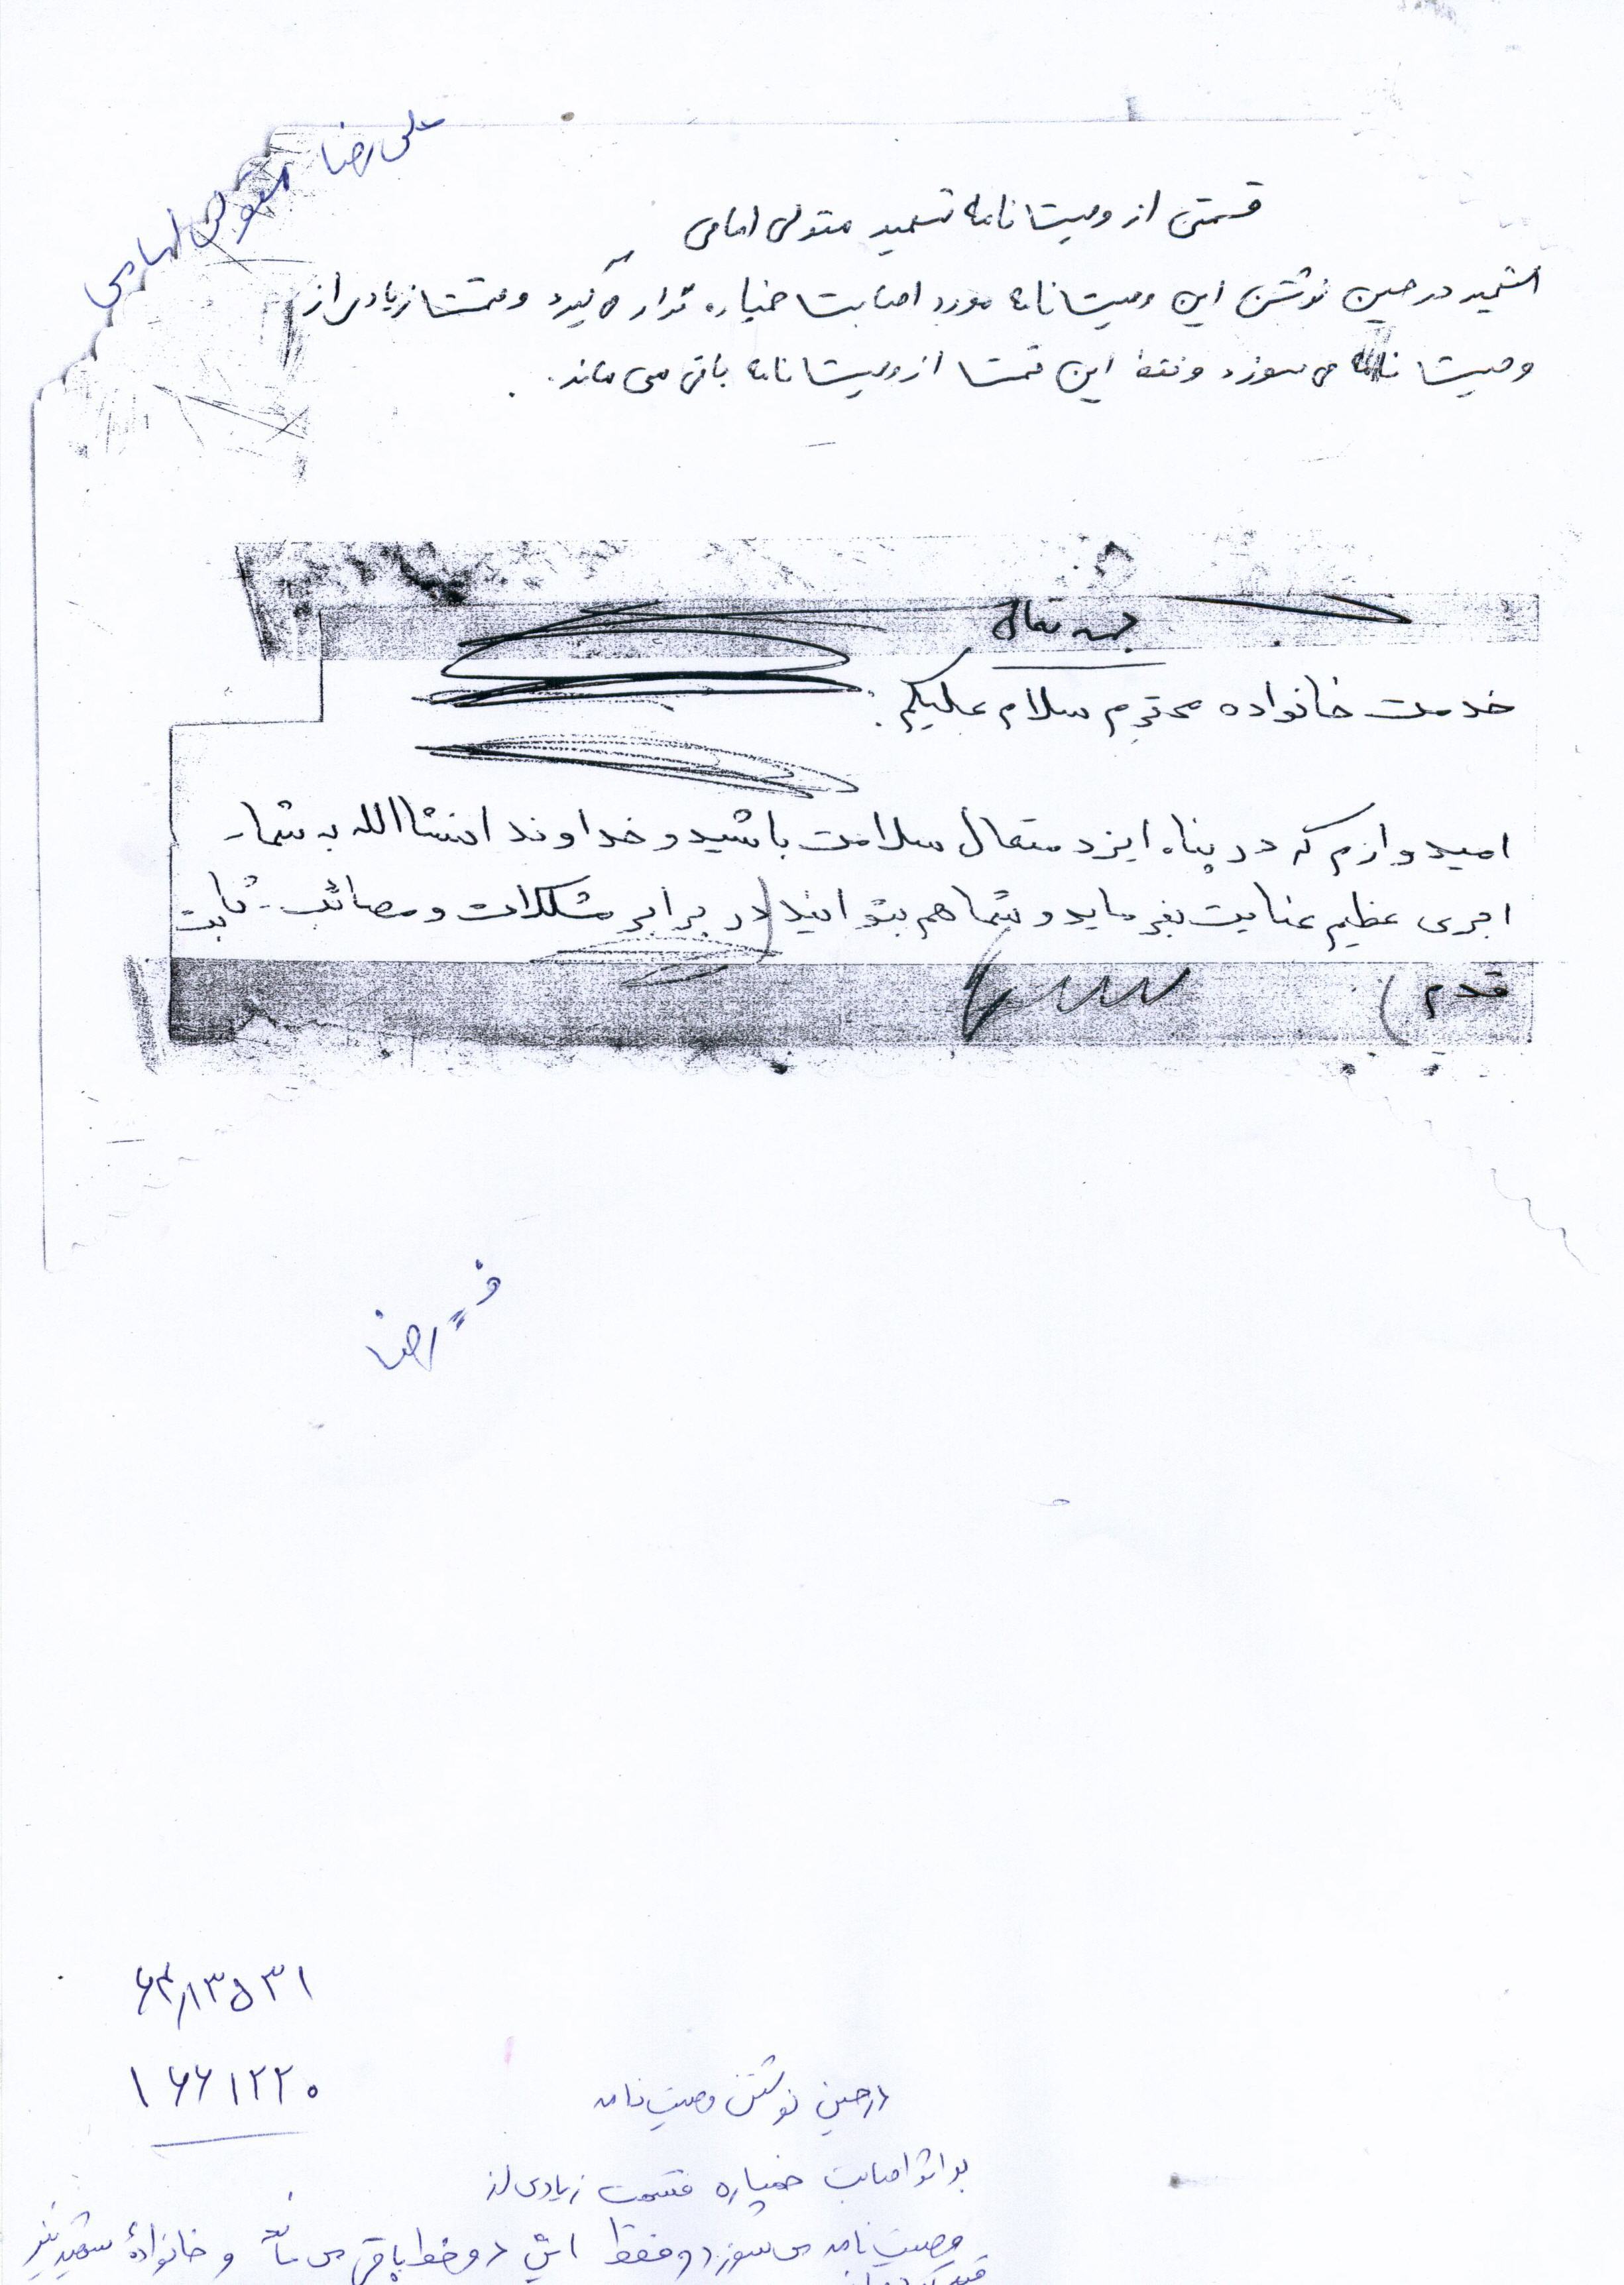 علی رضا متولی امامی
قسمتی از وصیت نامه شهید متولی امامی
الشهید در حین نوشتن این وصیت نامه مورد اصابت خمپاره قرار می گیرد و قسمت زیادی از
وصیت نامه می سوزد و فقط این قسمت از وصیت نامه باقی می ماند.
بسمه تعالی
خدمت خانواده محترم سلام علیکم:
امیدوارم که در پناه ایزد متعال سلامت باشید و خداوند انشاالله به شما
اجری عظیم عنایت بفرماید و شما هم بتوانید (در برابر مشکلات و مصائب ثابت
قدم)
رضا
۶۴۸۱۳۵۳۱
۱۶۶۱۲۲۰
درحین نوشتن وصیت نامه
بر اثر اصابت خمپاره قسمت زیادی از
وصیت نامه می سوزد و فقط این دو خط باقی می ماند و خانواده شهید نیز